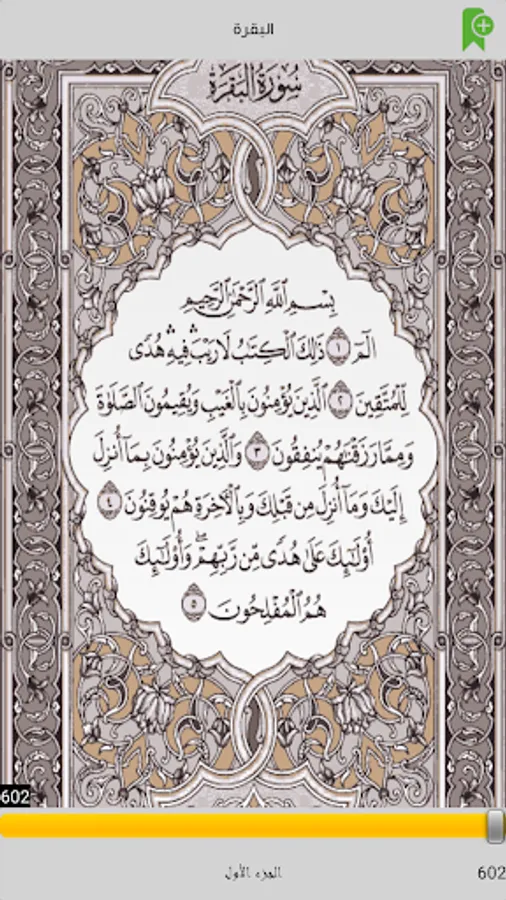 البقرة
سُورَةُ الْبَقَرَةِ
بِسْمِ اللَّهِ الرَّحْمَٰنِ الرَّحِيمِ
الٓمٓ ١ ذَٰلِكَ الْكِتَٰبُ لَا رَيْبَ ۛ فِيهِ ۛ هُدًى
لِّلْمُتَّقِينَ ٢ الَّذِينَ يُؤْمِنُونَ بِالْغَيْبِ وَيُقِيمُونَ الصَّلَوٰةَ
وَمِمَّا رَزَقْنَٰهُمْ يُنفِقُونَ ٣ وَالَّذِينَ يُؤْمِنُونَ بِمَا أُنزِلَ
إِلَيْكَ وَمَا أُنزِلَ مِن قَبْلِكَ وَبِالْآخِرَةِ هُمْ يُوقِنُونَ ٤
أُوْلَٰٓئِكَ عَلَىٰ هُدًى مِّن رَّبِّهِمْ ۖ وَأُوْلَٰٓئِكَ
هُمُ الْمُفْلِحُونَ ٥
602
الجزء الأول
602